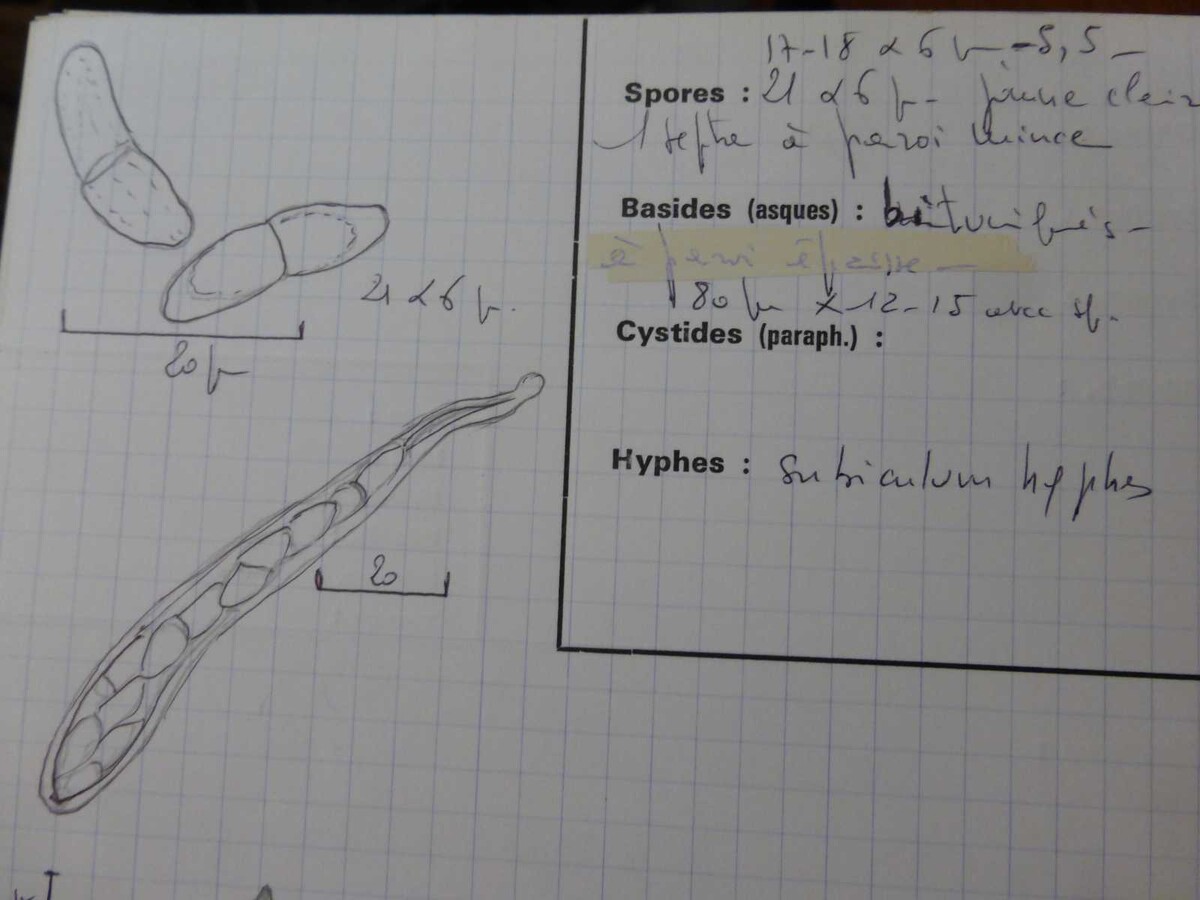 17-18 x 6 µ - 5,5 -
Spores : 21 x 6 µ - jaune clair
1 septe à paroi mince
Basides (asques) : bituniqués -
à paroi épaisse -
80 µ x 12-15 avec sp.
Cystides (paraph.) :
Hyphes : subiculum hyphes
21 x 6 µ.
20 µ
20